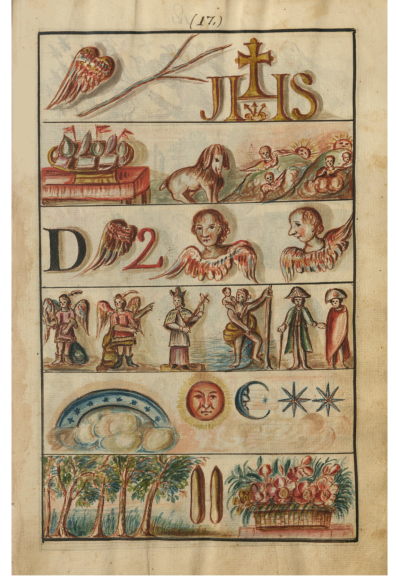 (17.)
JHS
D 2